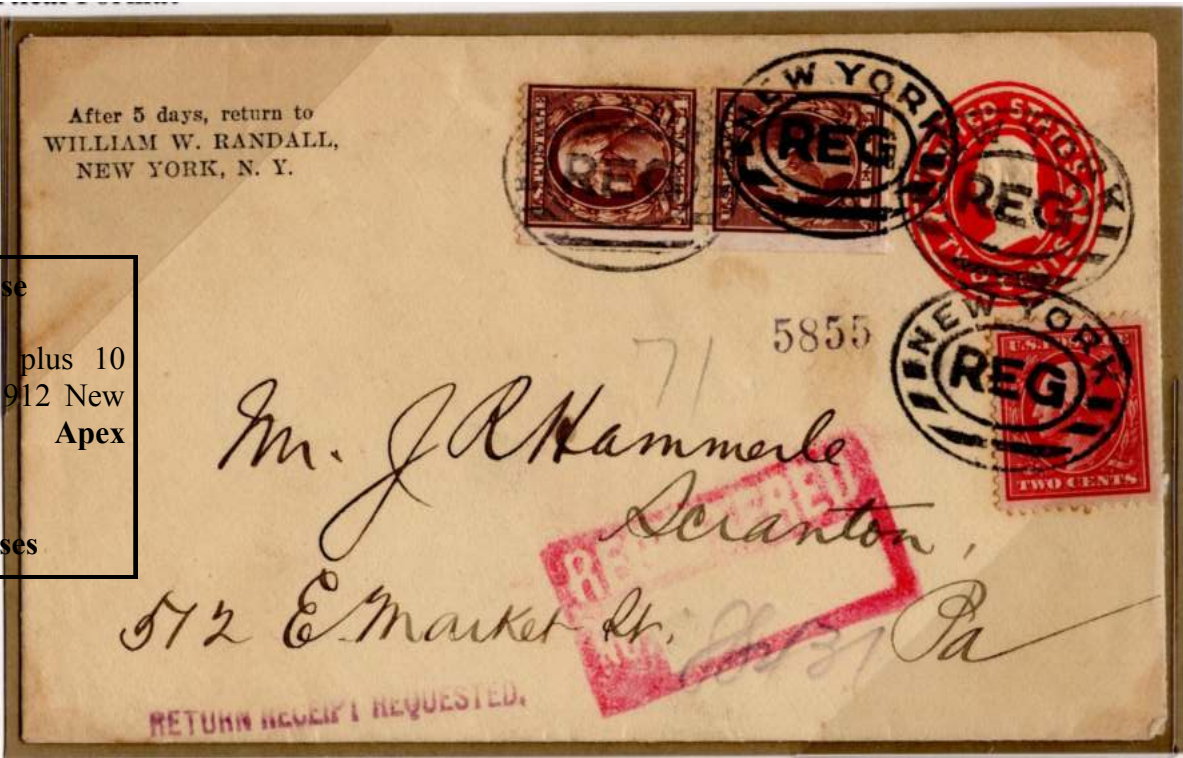 After 5 days, return to
WILLIAM W. RANDALL,
NEW YORK, N. Y.
NEW YORK
REG
REG
NEW YORK
REG
UNITED STATES
TWO CENTS
5855
71
NEW YORK
REG
U.S. POSTAGE
TWO CENTS
se
plus 10
912 New
Apex
ses
Mr. J R Hammerle
Scranton,
512 E. Market St. Pa
REGISTERED
RETURN RECEIPT REQUESTED.